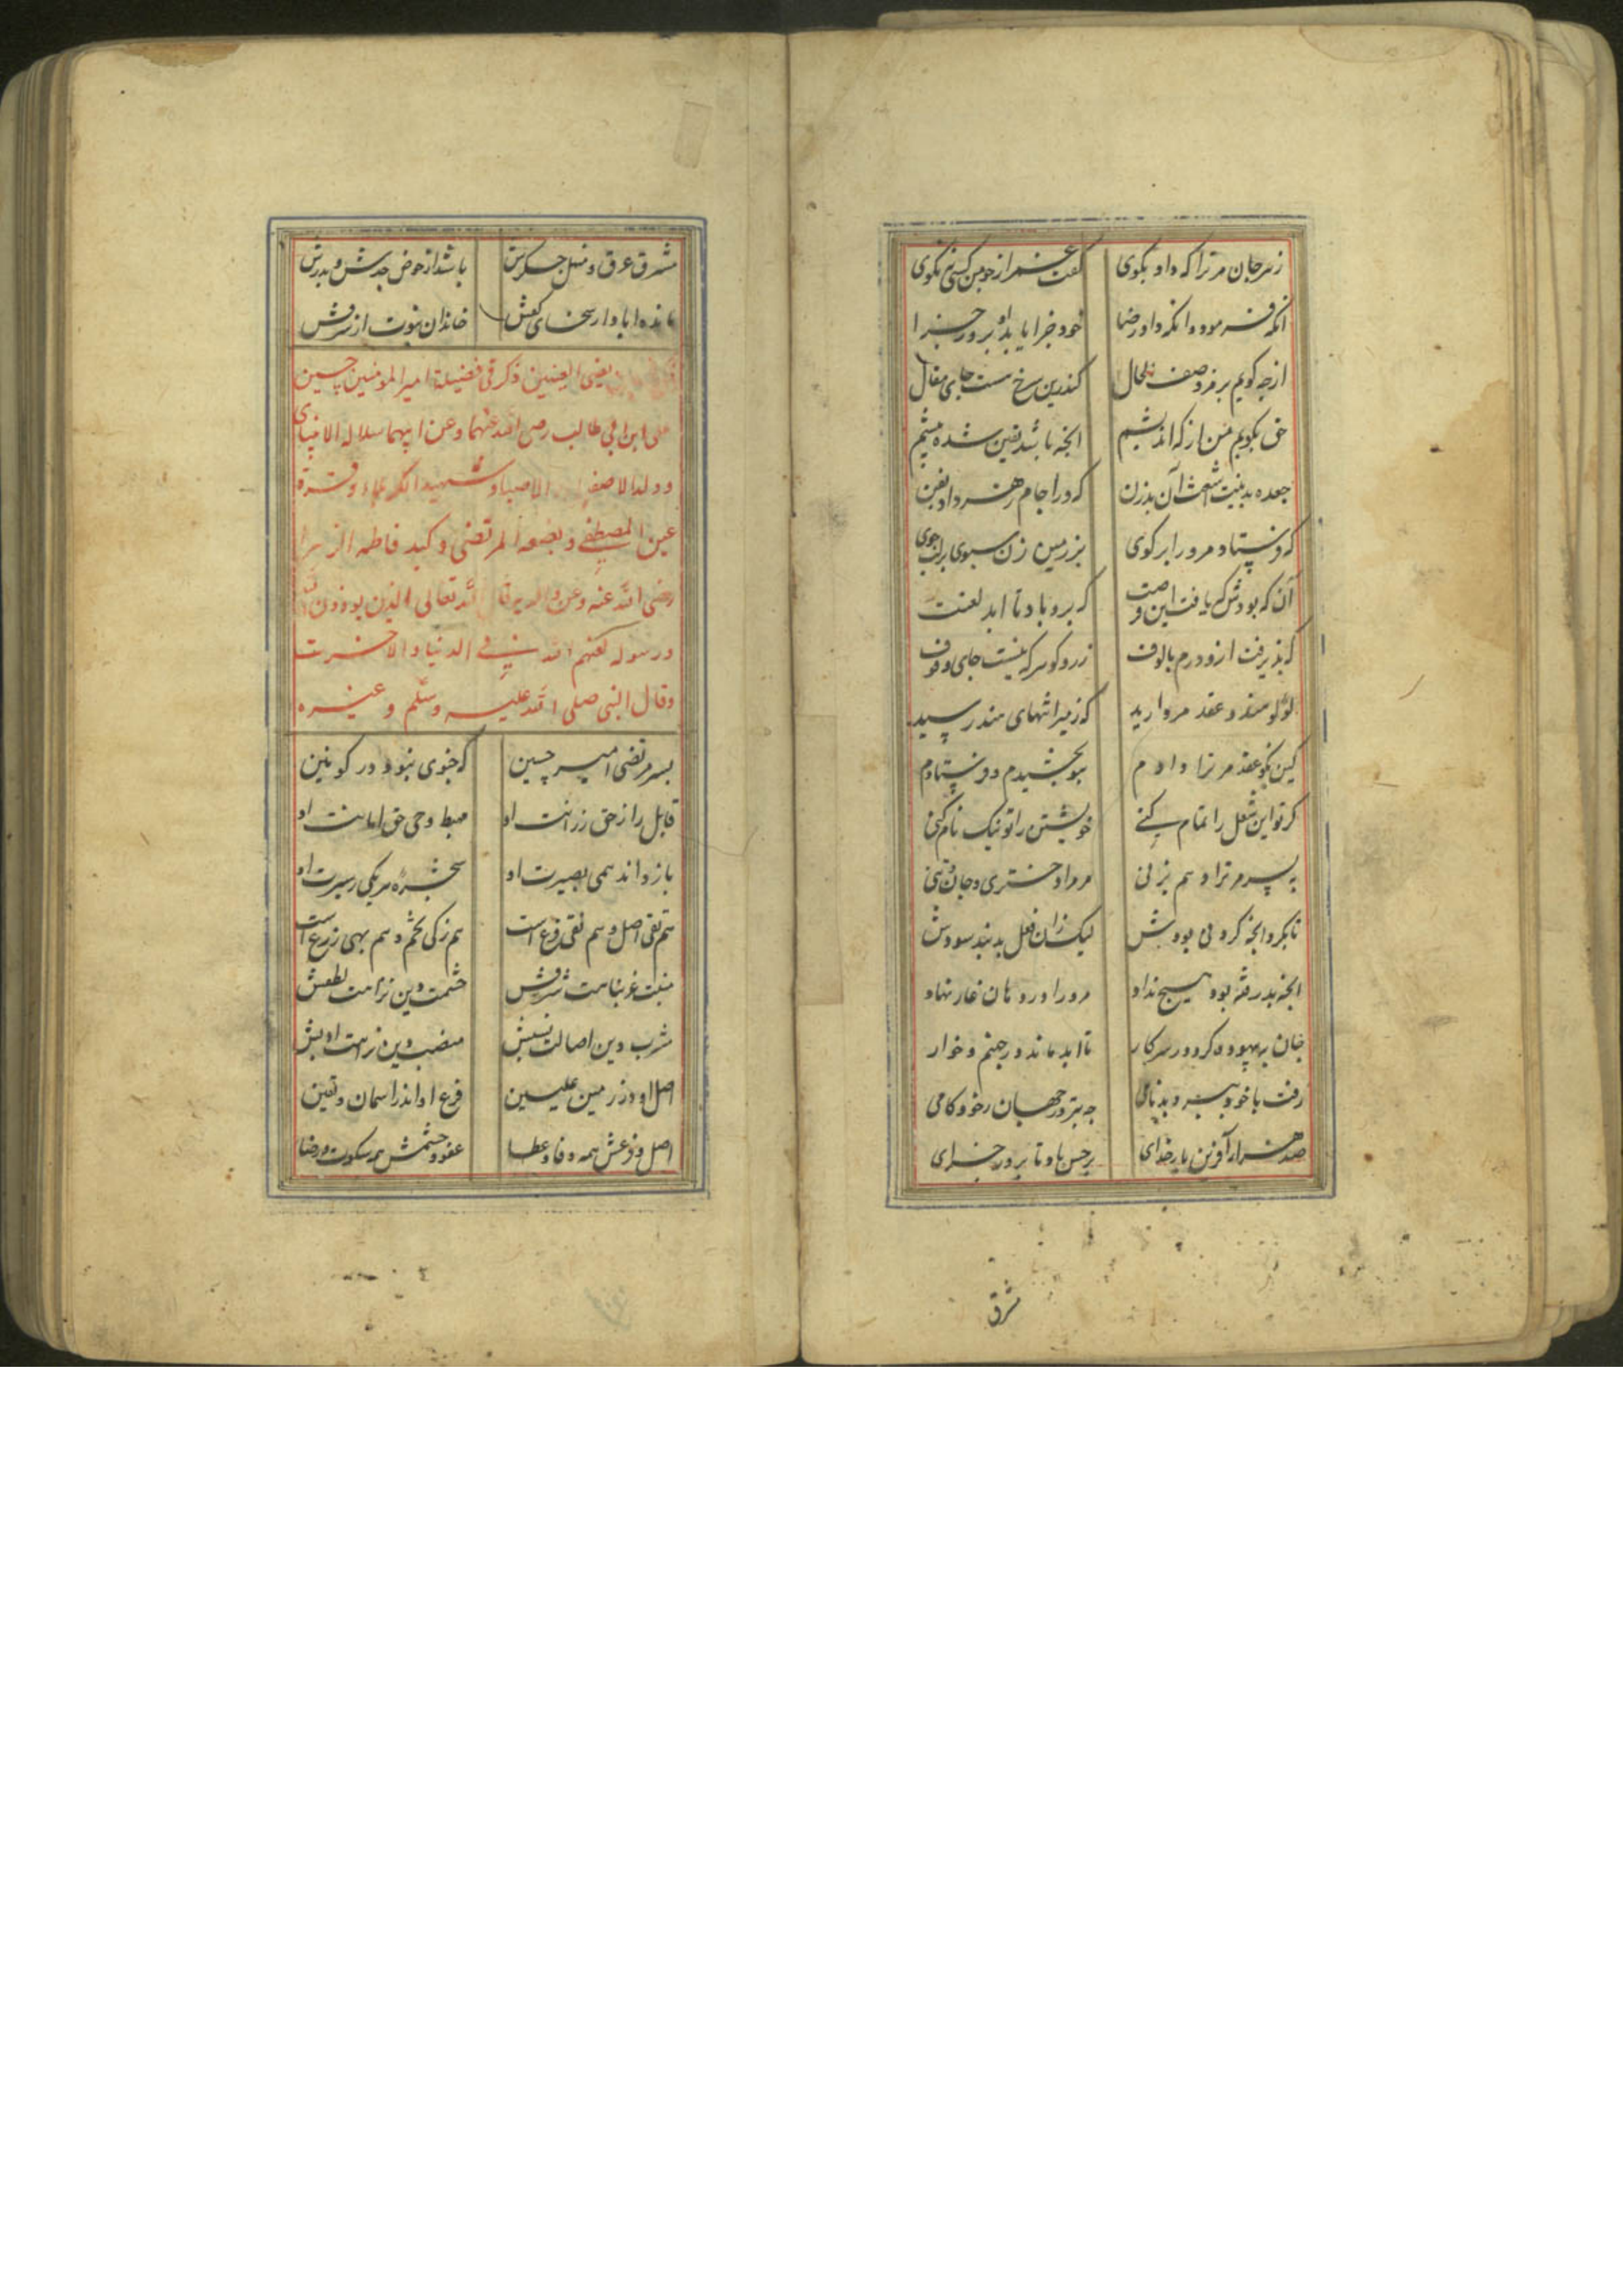 زهر جان مر ترا که داد بکوی کفت غمز از چو من کسی نکوی
انکه فرمود و انکه داد رضا خود جزا یابد او بروز جزا
از چه کویم برمز وصف الحال کندرین رخ هست جای مقال
حق بکویم من از که اندیشم انچه باشد یقین شده پیشم
جعده بد بنت اشعث آن بد زن که ورا جام زهر داد بفن
که فرستاد مرورا بر کوی بر زمین زن سبوی بر لب جوی
آن که بودش که یافت این فرصت که برو باد تا ابد لعنت
که پذیرفت ازو درم بالوف زر و کوهر که نیست جای وقوف
لولو هند و عقد مروارید که ز میراثهای هند رسید
کین نکو عقد مر ترا دادم بتو بخشیدم و فرستادم
کر تو این شغل را تمام کنی خویشتن را تو نیک نام کنی
به پسر مر ترا دهم بزنی مر مرا دختری و جان و تنی
تا بکرد انچه کردنی بودش لیک زان فعل بد نبد سودش
انچه پذرفته بود هیچ نداد مر ورا در دهان نار نهاد
جان به بیهوده کرد در سر کار تا ابد ماند در جهنم و خوار
رفت با خود ببرد بدنامی چه بتر در جهان ز خودکامی
صد هزار آفرین بار خدای بر حسن باد تا بروز جزای
شرق
مشرق عرق و منهل جکرش باشد از حوض جدش و پدرش
مانده اباد از سخای کفش خاندان نبوت از شرفش
ذکر فی فضیلة امیر المومنین حسین
علی ابن ابی طالب رضی الله عنهما و عن ابیهما سلالة الانبیای
و ولد الاصفیا الاصیا و شهید الکربلاء و قرة
عین المصطفی و بضعه المرتضی و کبد فاطمه الزهرا
رضی الله عنه و عن والدیه قال الله تعالی الذین یوذون الله
و رسوله لعنهم الله فی الدنیا والاخرت
وقال النبی صلی الله علیه وسلم و غیره
پسر مرتضی امیر حسین که چنوی نبود در کونین
قابل راز حق رزانت او مهبط وحی حق امانت او
باز داند همی بصیرت او شجره هر یکی ز سیرت او
هم تقی اصل و هم نقی فرع است هم زکی تخم و هم بهی زرع است
منبت عز نباهت شرفش حشمت دین نزاهت لطفش
مشرب دین اصالت نسبش منصب دین نزاهت ادبش
اصل او در زمین علیین فرع او اندر اسمان و یقین
اصل و فرعش همه وفا و عطا عفو و خشمش همه سکوت و رضا